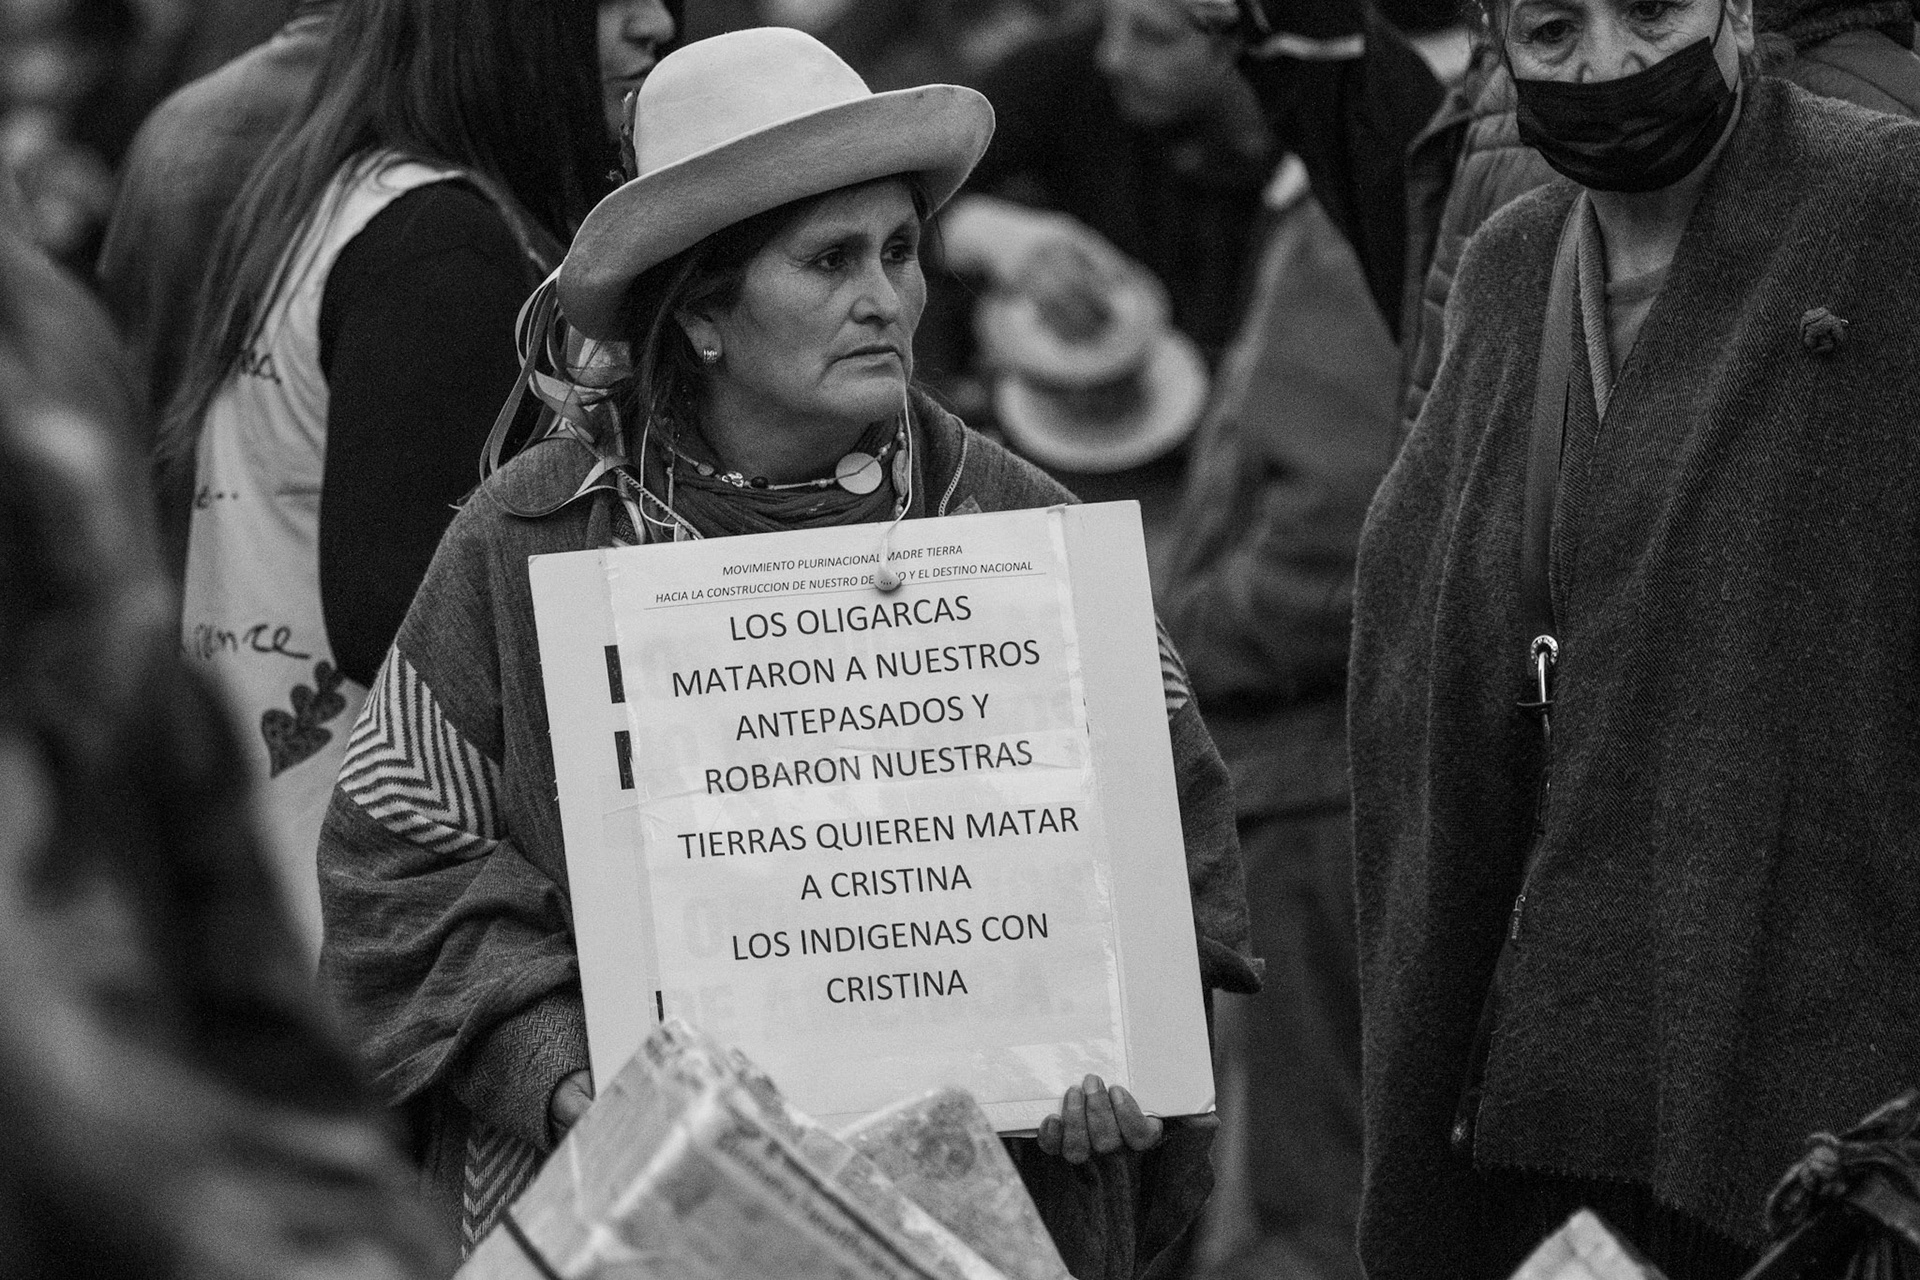 MOVIMIENTO PLURINACIONAL MADRE TIERRA
HACIA LA CONSTRUCCION DE NUESTRO Y EL DESTINO NACIONAL
LOS OLIGARCAS
MATARON A NUESTROS
ANTEPASADOS Y
ROBARON NUESTRAS
TIERRAS QUIEREN MATAR
A CRISTINA
LOS INDIGENAS CON
CRISTINA